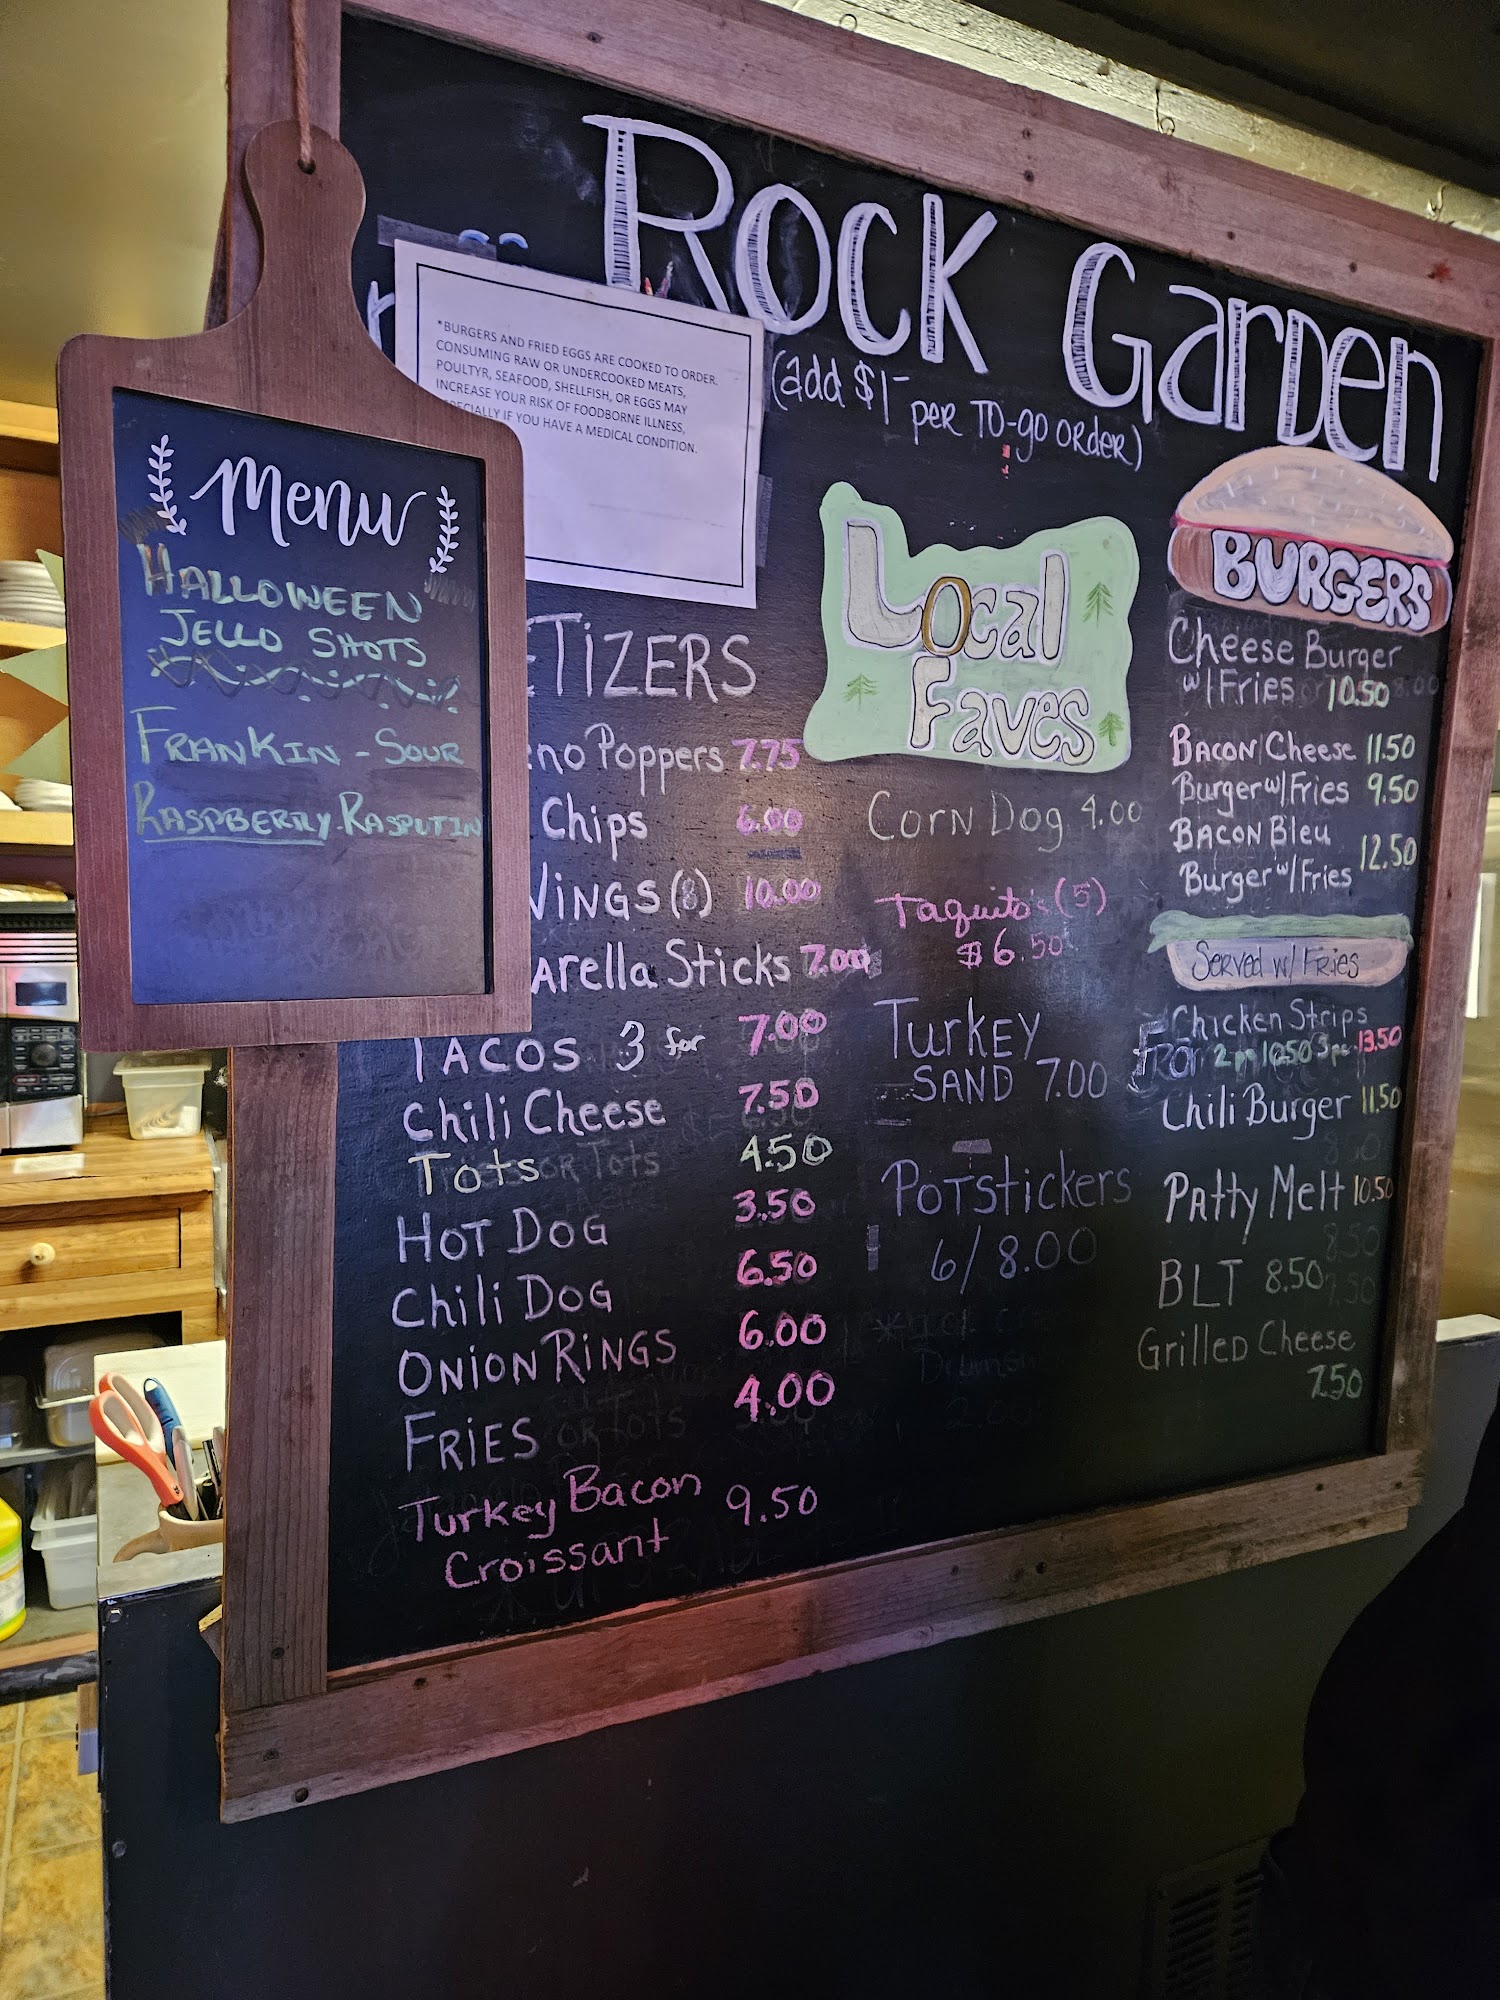 Rock Garden
(add $1- per TO-go order)
*BURGERS AND FRIED EGGS ARE COOKED TO ORDER.
CONSUMING RAW OR UNDERCOOKED MEATS,
POULTYR, SEAFOOD, SHELLFISH, OR EGGS MAY
INCREASE YOUR RISK OF FOODBORNE ILLNESS,
PECIALLY IF YOU HAVE A MEDICAL CONDITION.
Menu
HALLOWEEN
JELLO SHOTS
FRANKIN-SOUR
RASPBERRY-RASPUTIN
ETIZERS
eno Poppers 7.75
Chips 6.00
WINGS (8) 10.00
arella Sticks 7.00
TACOS 3 for 7.00
Chili Cheese 7.50
Tots 4.50
HOT DOG 3.50
Chili DOG 6.50
ONION RINGS 6.00
FRIES 4.00
Turkey Bacon 9.50
Croissant
Local
Faves
Corn Dog 4.00
Taquito's (5)
$6.50
Turkey
SAND 7.00
POTstickers
6/8.00
BURGERS
Cheese Burger
w/Fries 10.50
BACON/Cheese 11.50
Burger w/Fries 9.50
BACON Bleu
Burger w/Fries 12.50
Served w/ Fries
Chicken Strips
2 10.50 3 13.50
Chili Burger 11.50
Patty Melt 10.50
BLT 8.50
Grilled Cheese
7.50